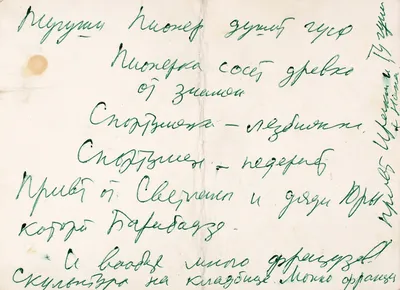 Пионер душит гуся
Пионерка сосёт древко
от знамени
Спортсменка – лезбиянка
Спортсмен – педераст
Привет от Светланы и дяди Юры
которой
И вообще много французов!
Скульптура на кладбище Монко француз
Привет